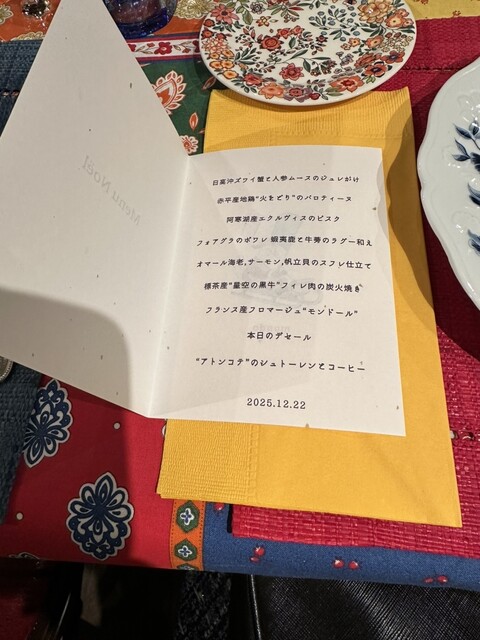 Menu Noël
日高沖ズワイ蟹と人参ムースのジュレがけ
赤平産地鶏“火をどり”のバロティーヌ
阿寒湖産エクルヴィスのビスク
フォアグラのポワレ 蝦夷鹿と牛蒡のラグー和え
オマール海老,サーモン,帆立貝のスフレ仕立て
標茶産“星空の黒牛”フィレ肉の炭火焼き
フランス産フロマージュ“モンドール”
本日のデセール
“アトンコテ”のシュトーレンとコーヒー
2025.12.22